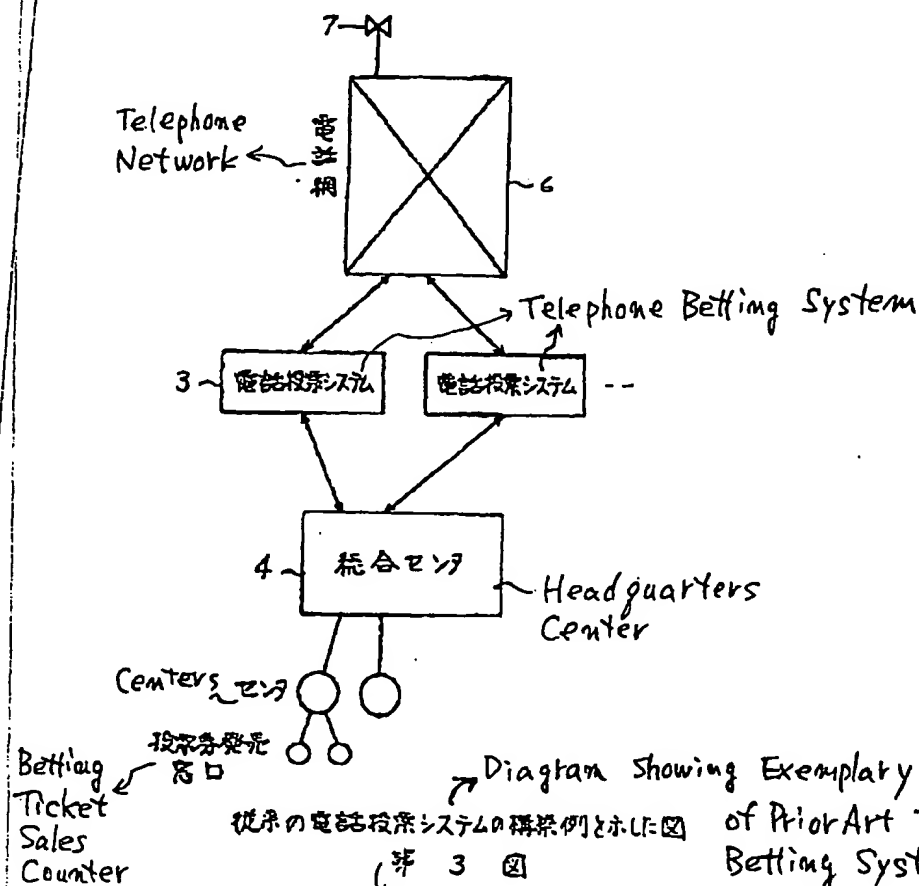 7
Telephone
Network
電話網
6
Telephone Betting System
3
電話投票システム
電話投票システム
--
4
総合センタ
Headquarters
Center
Centers
センタ
Betting
Ticket
Sales
Counter
投票券発売
窓口
Diagram Showing Exemplary
of Prior Art
Betting Sys
従来の電話投票システムの構築例を示した図
第 3 図